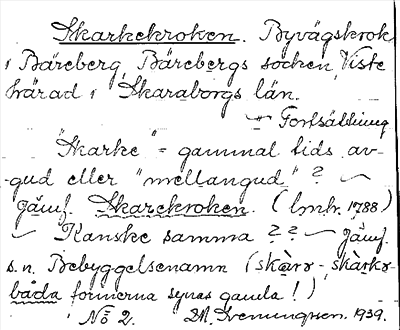 Skarkekroken. Byvägskrok
i Bäreberg, Bärebergs socken, Viste
härad i Skaraborgs län.
Fortsättning
"Skarke" = gammal tids av-
gud eller "mellangud"? ~
Jämf. Skarekroken. (Lmtr. 1788)
~ Kanske samma?? ~ Jämf.
s.n. Bebyggelsenamn (skàrr-, skàrkr-
båda formerna synas gamla!)
No 2. 1939.